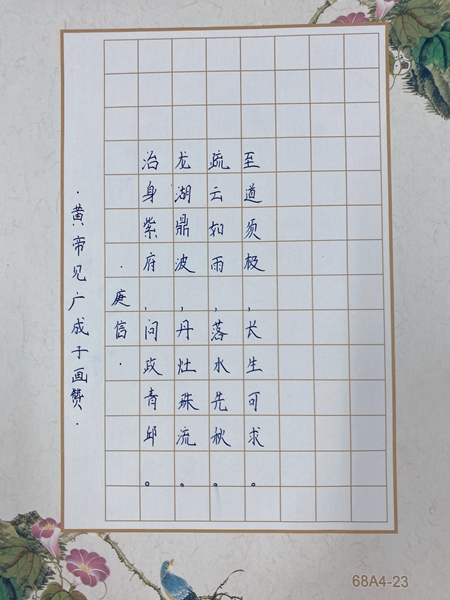 ·黄帝见广成子画赞·
·庾信·
治身紫府,问政青邱。
龙湖鼎波,丹灶珠流。
疏云如雨,落水先秋。
至道须极,长生可求。
68A4-23